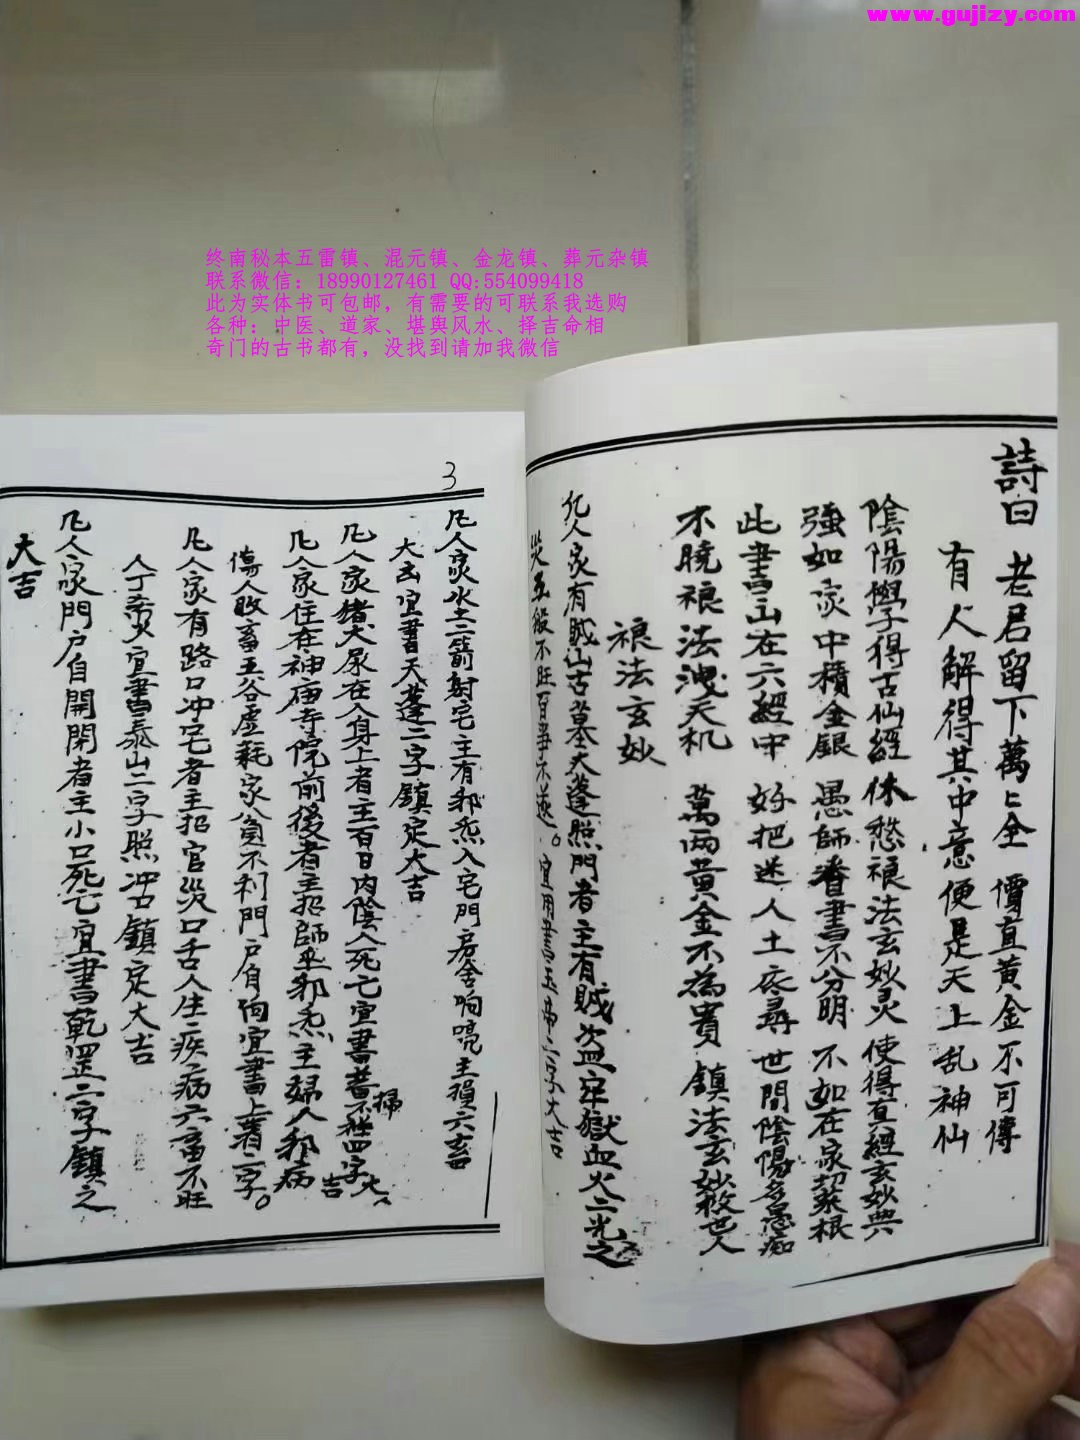 www.gujizy.com
终南秘本五雷镇、混元镇、金龙镇、葬元杂镇
联系微信：18990127461 QQ:554099418
此为实体书可包邮，有需要的可联系我选购
各种：中医、道家、堪舆风水、择吉命相
奇门的古书都有，没找到请加我微信
詩曰 老君留下萬卜全 價直黄金不可傳
有人解得其中意 便是天上乱神仙
陰陽學得古仙經 休愁禳法玄妙灵 使得真經玄妙典
強如家中積金銀 愚師看書不分明 不如在家 根
此書出在六經中 好把迷人土底尋 世間陰陽多愚痴
不曉禳法洩天机 萬两黄金不為貴 鎮法玄妙救世人
禳法玄妙
凡人家有賊山古墓天蓬照門者主有賊盗牢獄血火二光之
災五般不旺百事不遂。宜用書玉帝二字大吉
3
凡人家水土二箭射宅主有邪炁入宅門房舍响喨主損六畜
大吉宜書天蓬二字鎮定大吉
凡人家猪犬尿在人身上者主百日内陰人死亡宣書 四字大吉
掃
凡人家住在神庙寺院前後者主招師巫邪炁主婦人邪病
傷人敗畜五谷虚耗家貧不利門户自响宜書上 二字。
凡人家有路口冲宅者主招官災口舌人生疾病六畜不旺
人丁 災宜書泰山二字照冲处鎮定大吉
凡人家門户自開閉者主小口死亡宜書乾罡二字鎮之
大吉